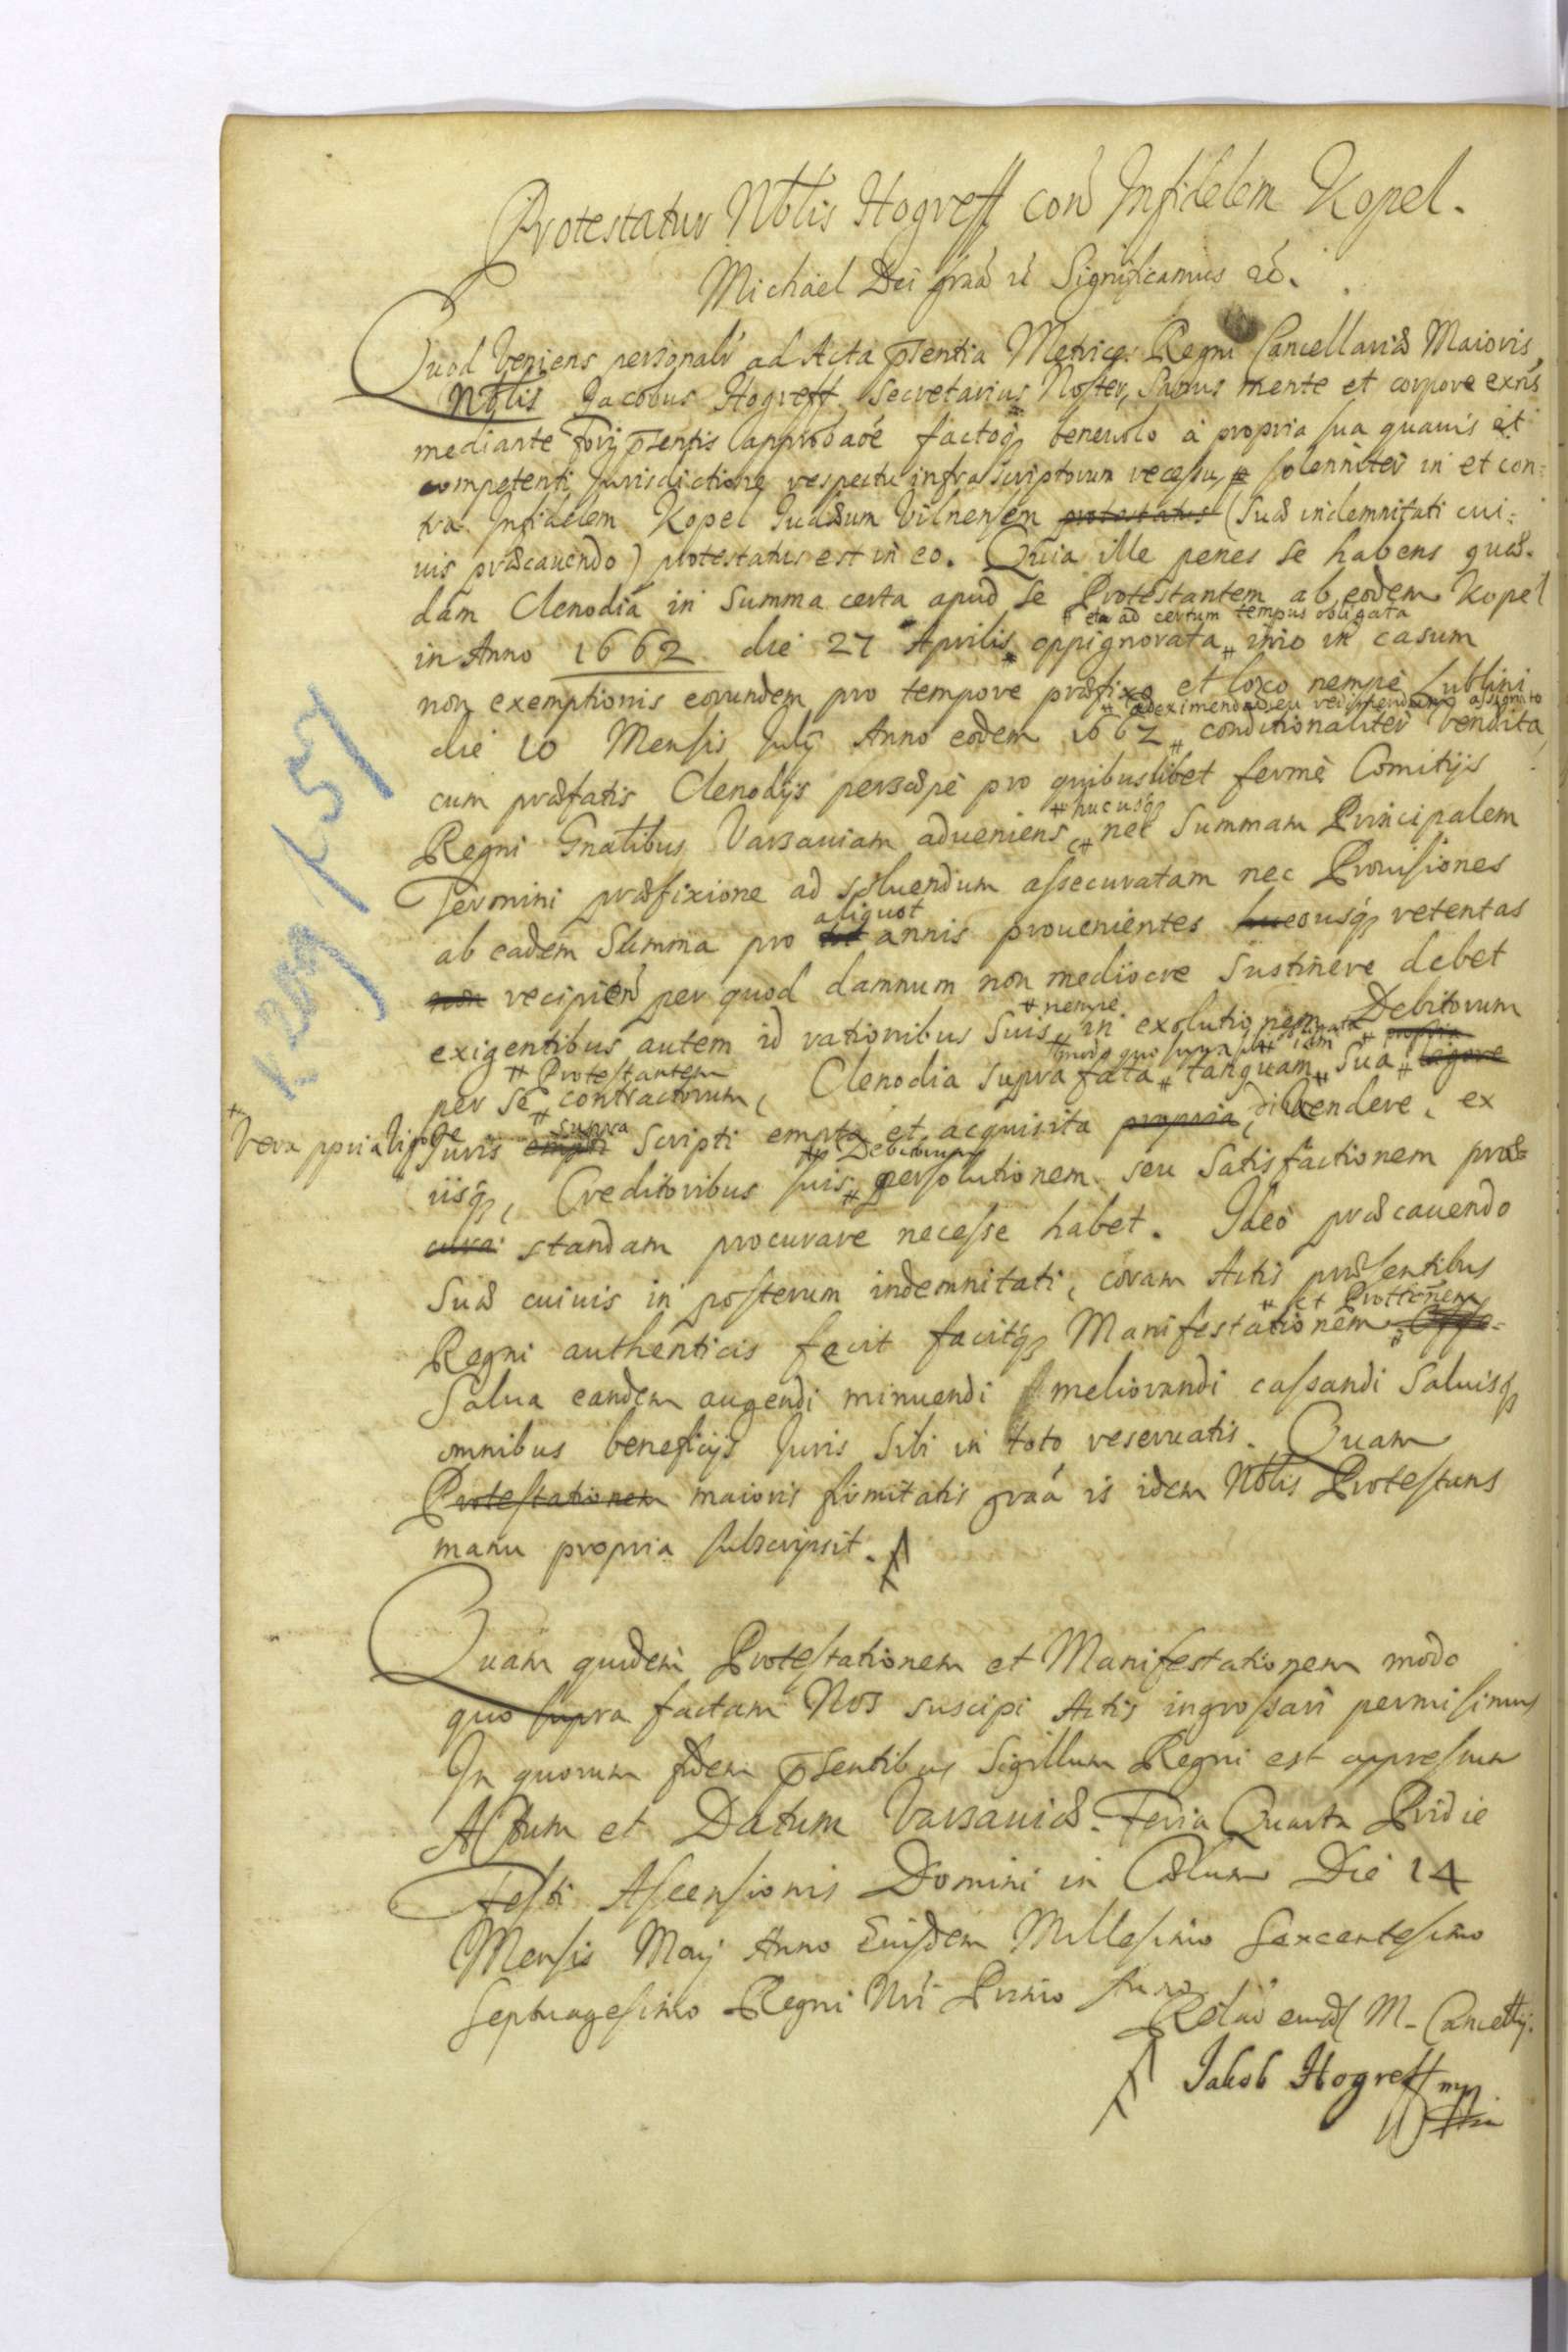 Protestatur Nbłis Hogreff con Infidelem Kopel.
Michael Dei graā &c Significamus &c.
Quod Veniens personalr ad Acta pñsentia Metrices Regni Cancellariæ Maioris
Nbłis Jacobus Hogreff Secretarius Noster, Sanus mente et corpore exñs
mediante Forij pñsentis approbaōe factoq; beneuolo à propria sua quauis et
competenti Jurisdictione respectu infra scriptorum recessu, solenniter in et con:
tra Infidelem Kopel Judæum Vilnensem protestatus (suæ indemnitati cui:
uis præcauendo) protestatus est in eo. Quia ille penes se habens quæ-
dam Clenodia in Summa certa apud se Protestantem ab eodem Kopel
# et ad certum tempus obligata
in Anno 1662 die 27 Aprilis oppignorata # imo in casum
non exemptionis eorundem pro tempore præfixo et loco nempe Lublini
# ad eximendum seu redimendum assignato
die 10 Mensis Julij Anno eodem 1662 # conditionaliter Vendita,
cum præfatis Clenodijs persæpè pro quibuslibet fermè Comitijs
# hucusq;
Regni Gnalibus Varsauiam adueniens, # nec Summam Principalem
Termini præfixione ad soluendum assecuratam nec Prouisiones
aliquot
ab eadem Summa pro tot annis prouenientes hucousq; retentas
non recipien per quod damnum non mediocre Sustinere debet
# nempe
exigentibus autem id rationibus Suis # in exolutionem Debitorum
# Protestantem # modo quo supra sibi obligata # iam # propria
per se # contractorum, Clenodia supra fata # tanquam # sua # ligore
# Vera ppria Vigore
supra
Juris empti Scripti empta et acquisita propria, diuendere, ex
# Debitorum
iisq;, Creditoribus suis # persolutionem seu Satisfactionem præ=
cura: standam procurare necesse habet. Ideò præcauendo
Suæ cuiuis in posterum indemnitati, coram Actis præsentibus
# et Prottōnem
Regni authenticis fecit facitq; Manifestationem #
Salua eandem augendi minuendi meliorandi cassandi Saluisq;
omnibus beneficijs Juris Sibi in toto reseruatis. Quam
Protestationem maioris firmitatis graā is idem Nbłis Protestans
manu propria subscripsit.
Quam quidem Protestationem et Manifestationem modo
quo supra factam Nos suscipi Actis ingrossari permisimus
In quorum fidem pñsentibus Sigillum Regni est appressum
Actum et Datum Varsauiæ. Feria Quarta Pridie
Festi Ascensionis Domini in Cælum Die 14
Mensis Maij Anno Eiusdem Millesimo Sexcentesimo
Septuagesimo Regni Nri Primo Anno
Relao eiusd M. Cancellrij.
Jakob Hogreff mp